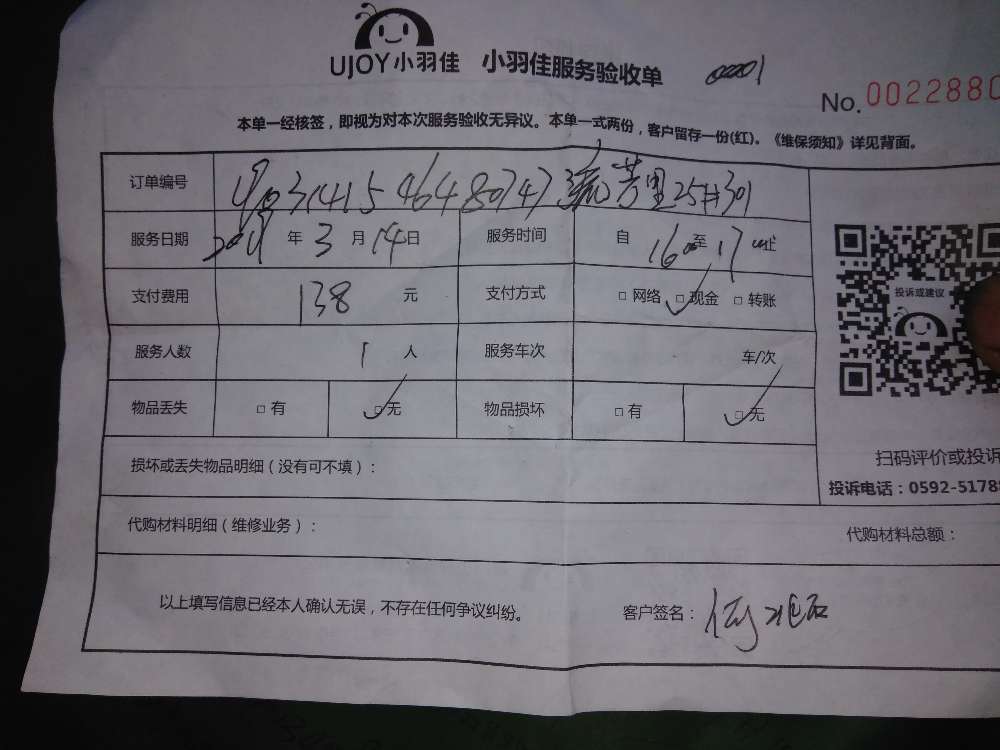 UJOY小羽佳 小羽佳服务验收单 0001
No. 0022880
本单一经核签，即视为对本次服务验收无异议。本单一式两份，客户留存一份(红)。《维保须知》详见背面。
订单编号 1903141546480747 芳里25#301
服务日期 2019 年 3 月 14 日 服务时间 自 16 至 17 止
投诉或建议
支付费用 138 元 支付方式 □网络 □现金 □转账
服务人数 1 人 服务车次 车/次
物品丢失 □有 □无 物品损坏 □有 □无
扫码评价或投诉
损坏或丢失物品明细（没有可不填）：
投诉电话：0592-5178
代购材料明细（维修业务）： 代购材料总额：
以上填写信息已经本人确认无误，不存在任何争议纠纷。 客户签名：